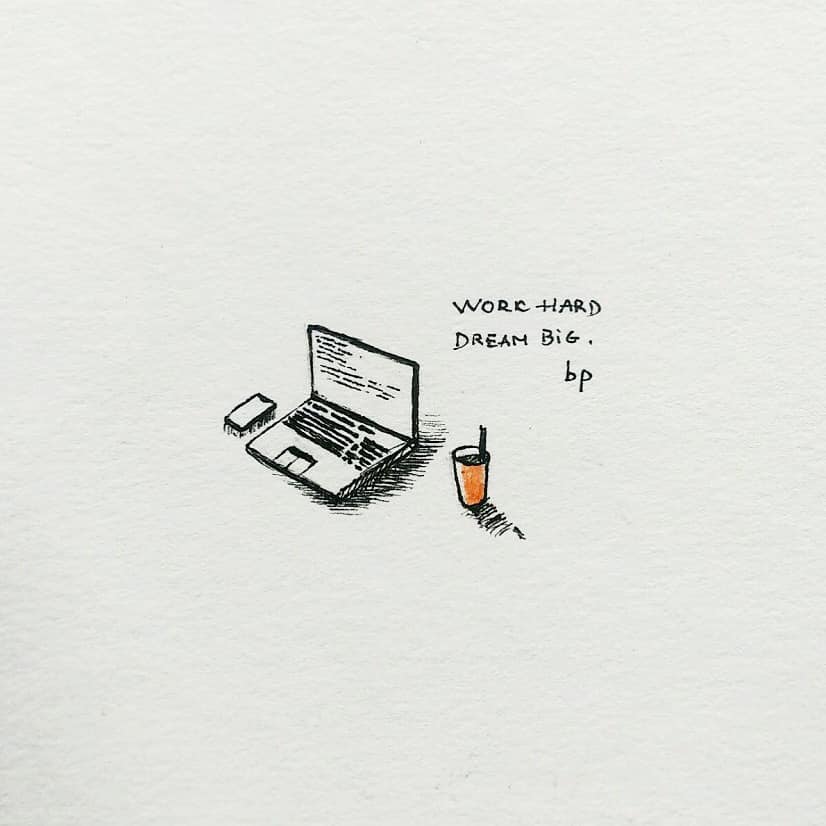 WORK HARD
DREAM BiG.
bp